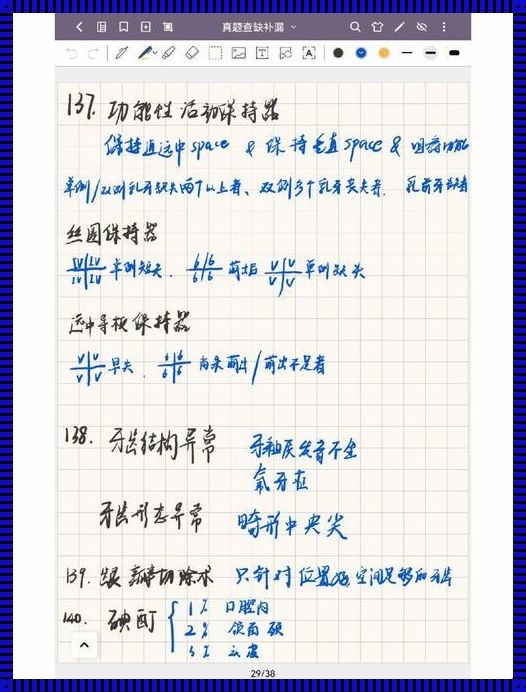 真题查缺补漏
137. 功能性活动保持器
保持近远中 space & 保持垂直 space & 咀嚼功能
单侧/双侧乳牙缺失两个以上者、双侧多个乳牙丧失者. 乳前牙缺者
丝圈保持器
IV|IV IV|IV 单侧缺失. 6|6 6|6 萌出后 V|V V|V 单侧缺失
远中导板保持器
V|V V|V 早失. 6|6 6|6 尚未萌出/萌出不足者
138. 牙齿结构异常 牙釉质发育不全
氟牙症
牙齿形态异常 畸形中央尖
139. 龈瓣切除术 只针对位置 空间足够的牙齿
140. 碘酊 1% 口腔内
2% 颌面颈
3% 头皮
29/38